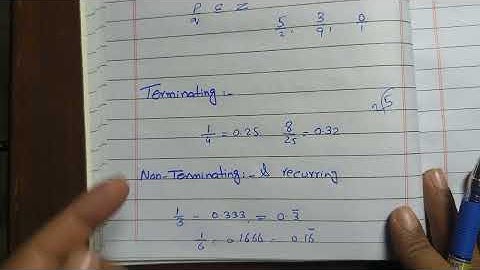 p/q ∈ Z
5/2, 3/9, 0/1
Terminating :-
√5
1/4 = 0.25 8/25 = 0.32
Non-Terminating :- & recurring
1/3 - 0.333. = 0.3̅
1/6 = 0.1666 = 0.16̅